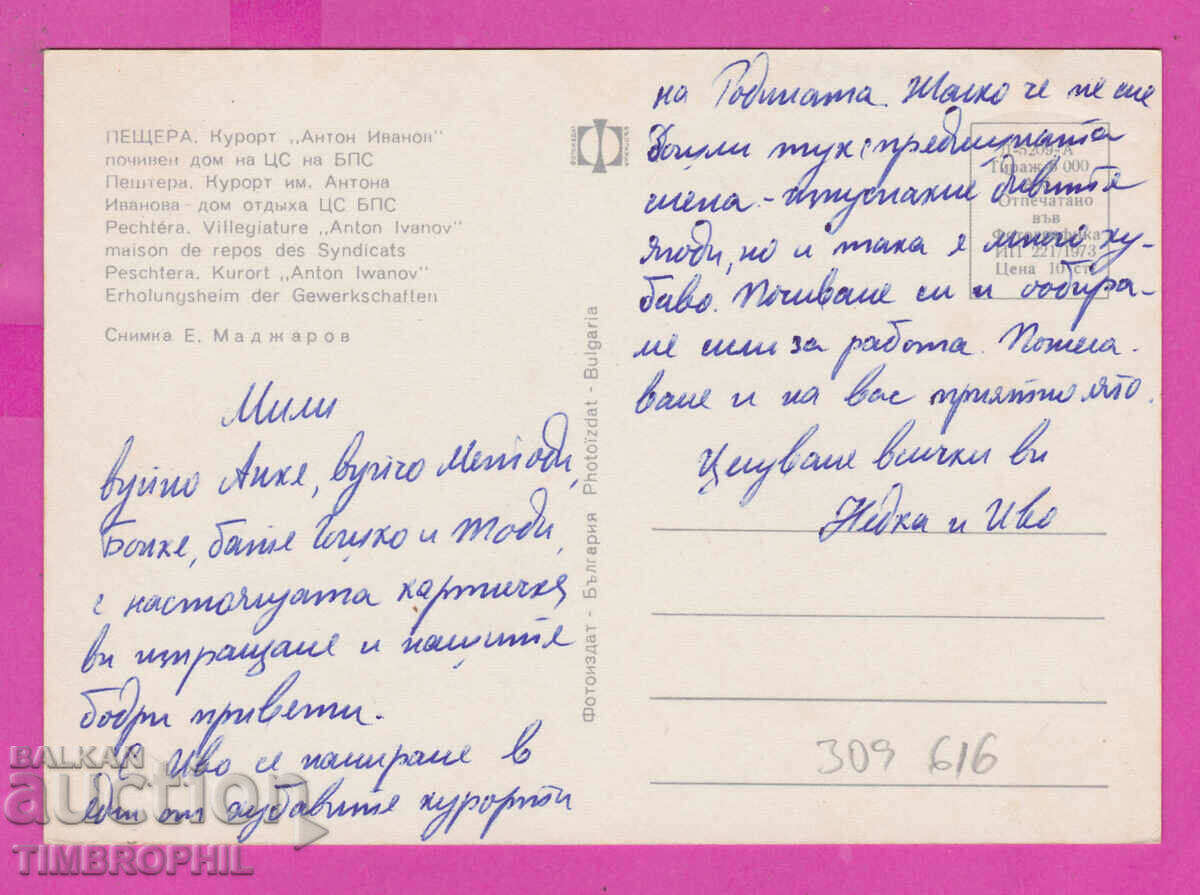 ПЕЩЕРА. Курорт „Антон Иванов"
почивен дом на ЦС на БПС
Пештера. Курорт им. Антона
Иванова - дом отдыха ЦС БПС
Pechtéra. Villegiature „Anton Ivanov"
maison de repos des Syndicats
Peschtera. Kurort „Anton Iwanov"
Erholungsheim der Gewerkschaften
Снимка Е. Маджаров
Мили
вуйно Анке, вуйчо Методи,
Бонке, бате Гошко и Жоди,
с настоящата картичка
ви изпращаме и нашите
бодри привети.
С Иво се намираме в
един от хубавите курорти
Фотоиздат - България Photoïzdat - Bulgaria
на Родината. Жалко че не сме
дошли тук предишната
смяна - изпуснахме дивите
ягоди, но и така е много ху-
баво. Почиваме си и събира-
ме сили за работа. Пожела-
ваме и на вас приятно лято.
Целуваме всички ви
Недка и Иво
Д-5209-А
Тираж 6 000
Отпечатано
във
Фотографика
ИП 221/1973
Цена 10 ст
309 616
BALKAN
auction
TIMBROPHIL